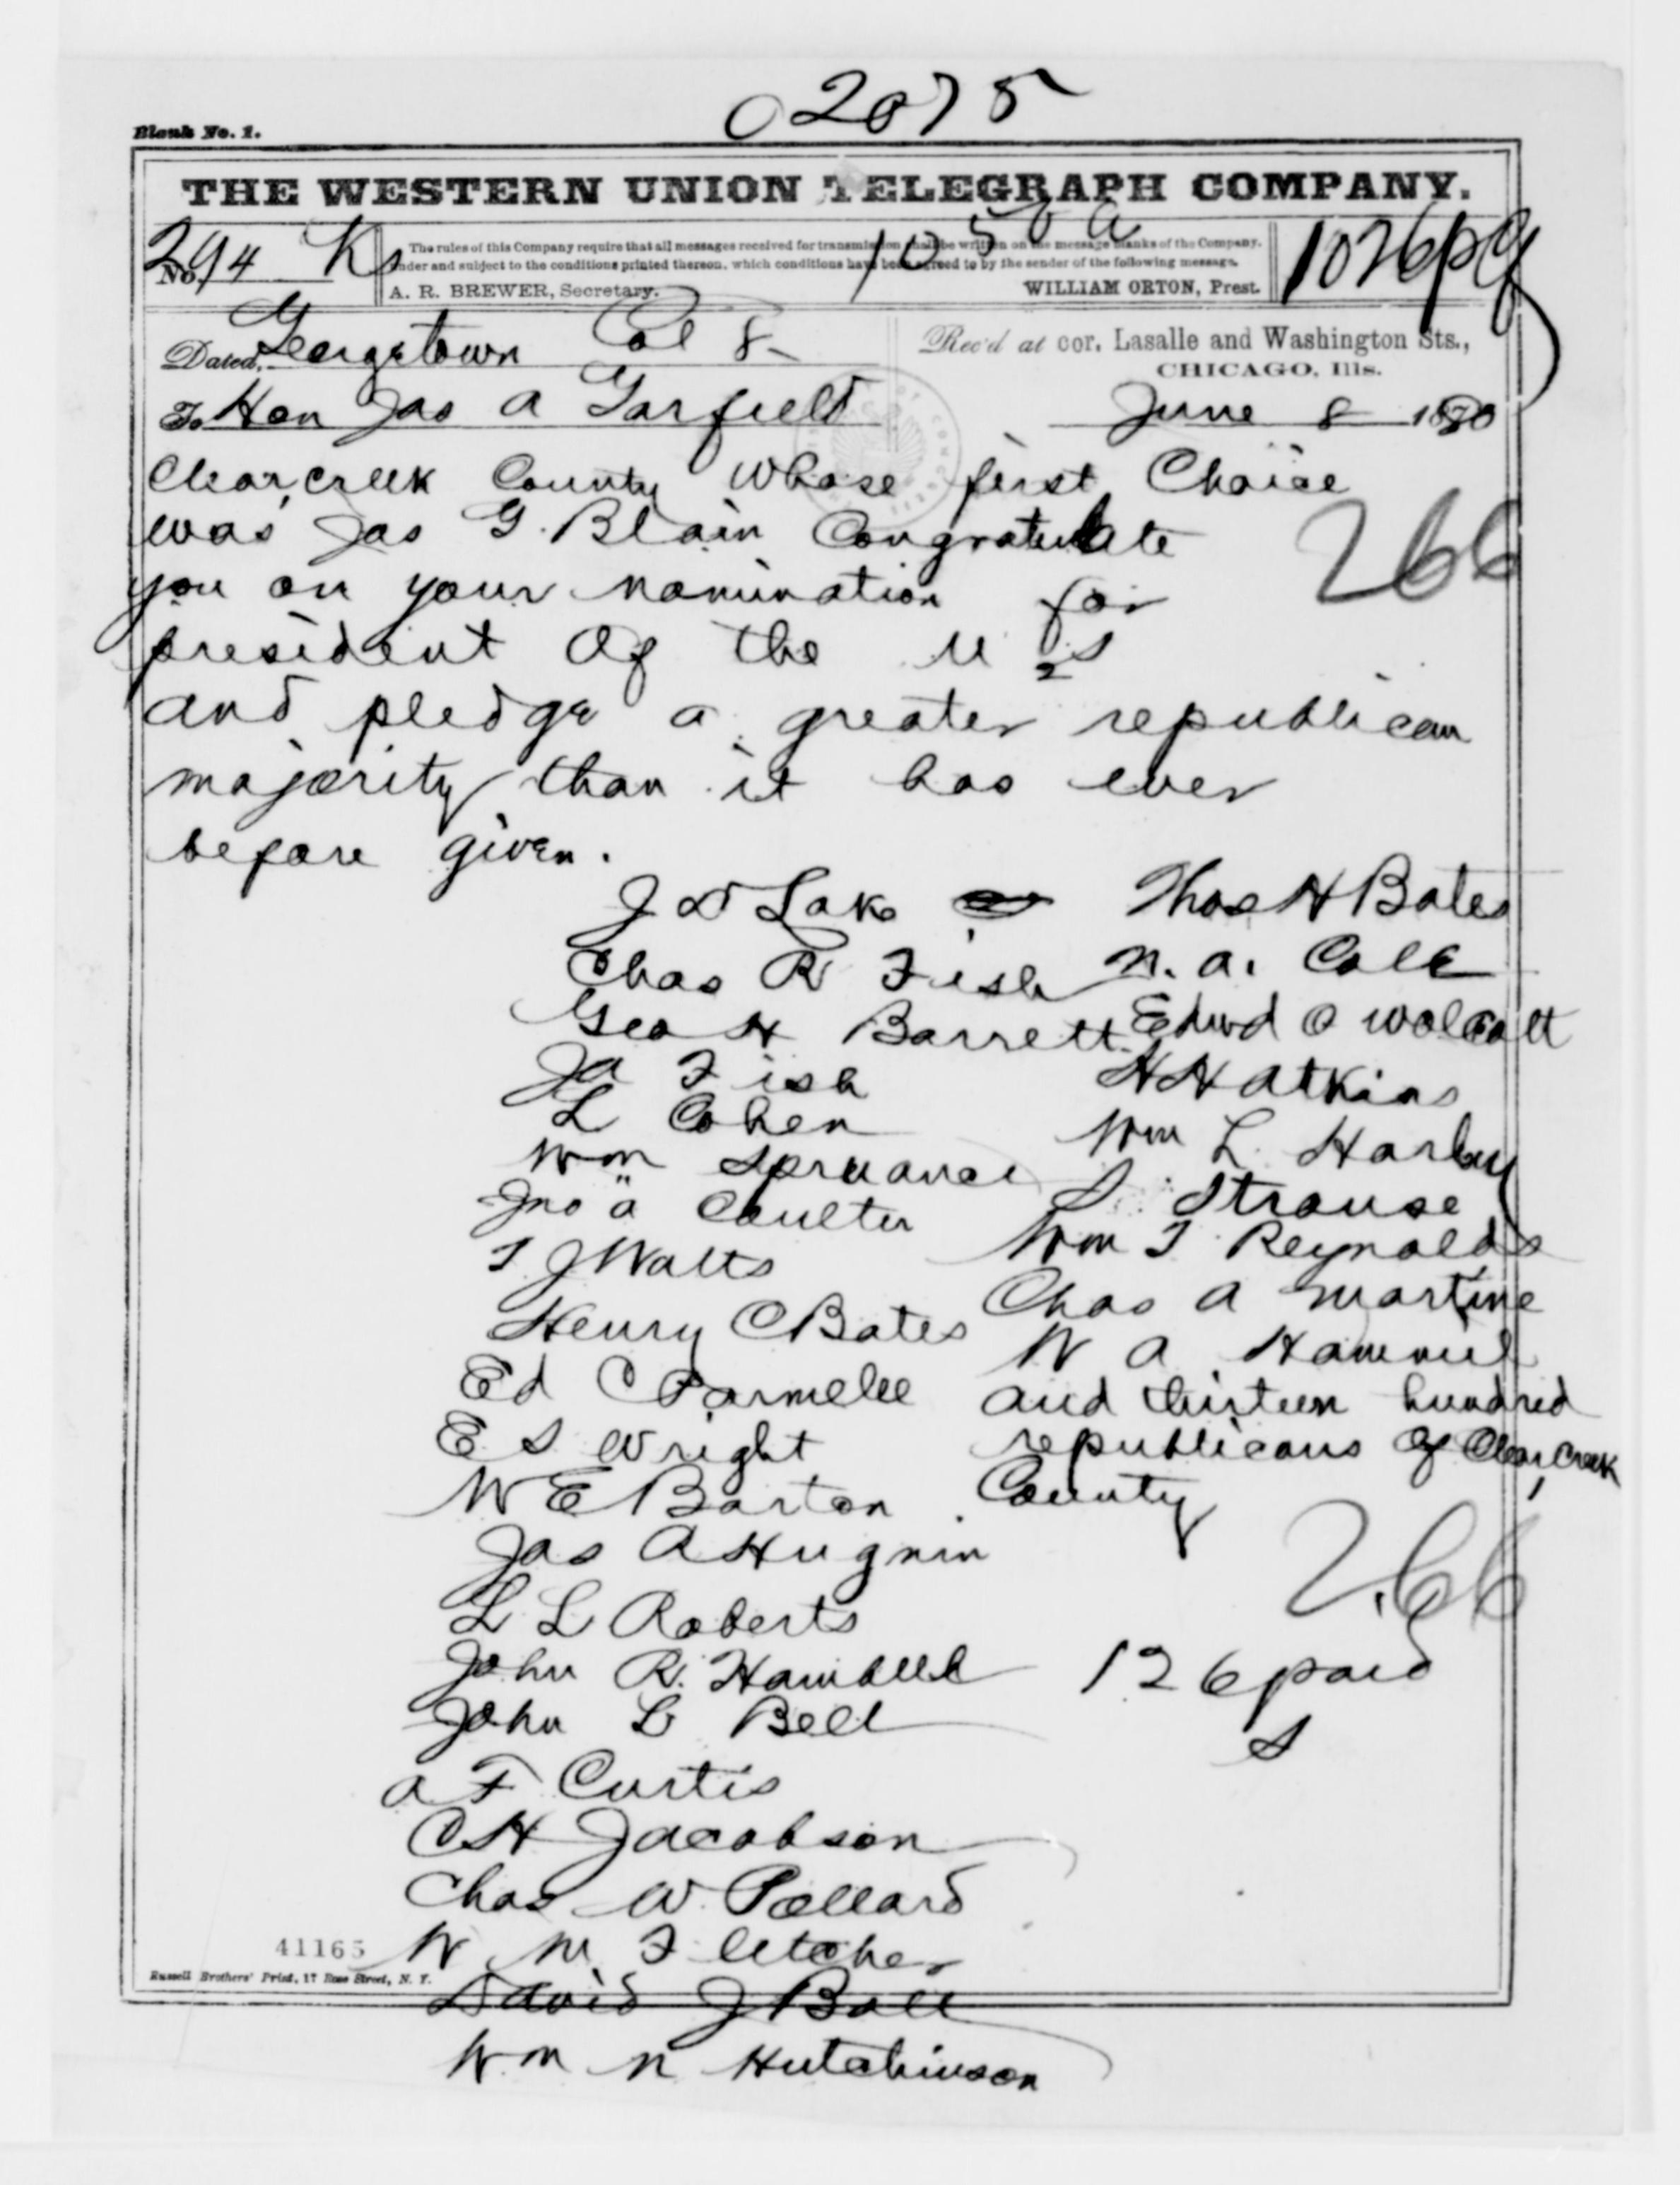 02075
Blank No. 1.
THE WESTERN UNION TELEGRAPH COMPANY.
No. 294 Ks
The rules of this Company require that all messages received for transmission shall be written on the message blanks of the Company,
under and subject to the conditions printed thereon, which conditions have been agreed to by the sender of the following message.
A. R. BREWER, Secretary. WILLIAM ORTON, Prest.
Dated, Georgetown Col 8
Rec'd at cor. Lasalle and Washington Sts.,
CHICAGO, Ills.
To Hon Jas A Garfield
June 8 1880
Clear Creek County whose first Choice
was Jas G. Blain Congratulate
266
you on your nomination for
president Of the U S
and pledge a greater republican
majority than it has ever
before given.
J D Lake
Chas R Fish
Geo H Barrett
Ja Fish
L Cohen
Wm Spruance
Jno A Coulter
T J Watts
Henry C Bates
Ed C Parmelee
E S Wright
W E Barton
Jas A Hugnin
L L Roberts
John R. Hambell
John L Bell
A F Curtis
C H Jacobson
Chas W. Pollard
W. M. Fletcher
David J Ball
Wm N Hutchinson
Thos H Bates
N. A. Cole
Edwd O Wolcott
H H Atkins
Wm L. Harley
S. Strouse
Wm T Reynolds
Chas A Martine
W A Hammill
and thirteen hundred
republicans Of Clear Creek
County
266
126 paid
S
41165
Russell Brothers' Print, 17 Rose Street, N. Y.